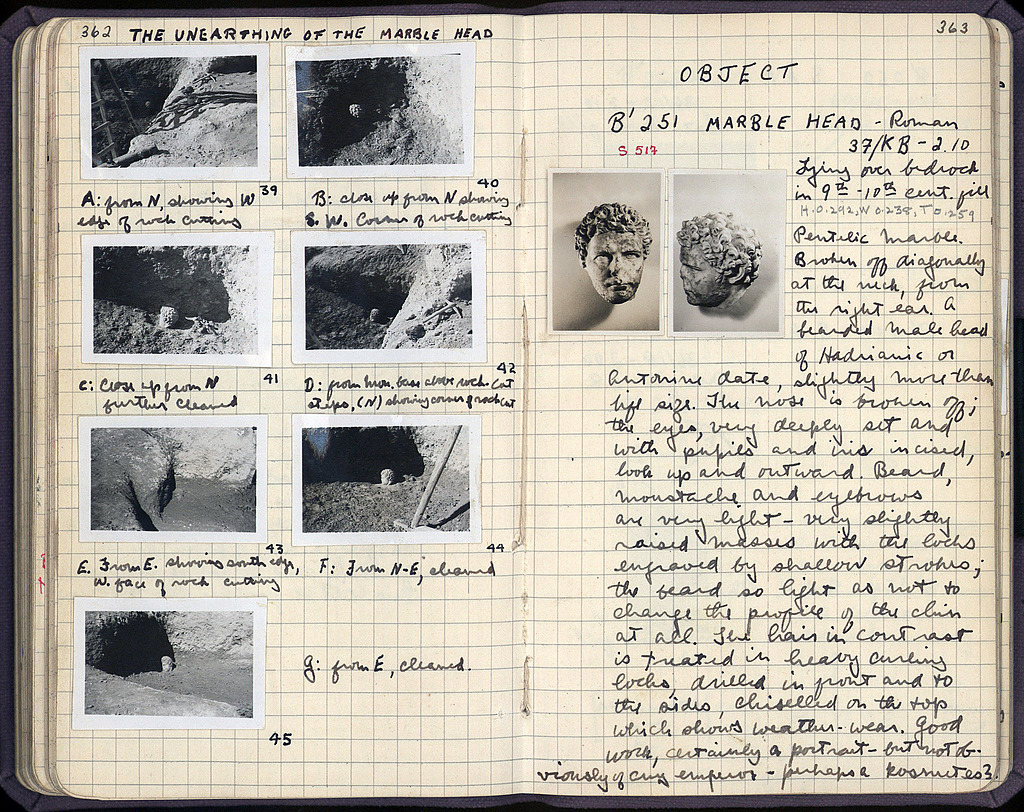 362 THE UNEARTHING OF THE MARBLE HEAD
39
A: from N, showing W
edge of rock cutting
40
B: close up from N showing
S. W. Corner of rock cutting
41
C: Close up from N
further cleaned
42
D: from Mon. base above rock-cut
steps, (N) showing corner of rock cut
43
E. From E. showing south edge,
W. face of rock cutting
44
F: From N-E, cleaned
G: from E, cleaned.
45
363
OBJECT
B' 251 MARBLE HEAD - Roman
S 517
37/KB - 2.10
Lying over bedrock
in 9th - 10th cent. fill
H. 0.292, W 0.238, T 0.259
Pentelic marble.
Broken off diagonally
at the neck, from
the right ear. A
bearded male head
of Hadrianic or
Antonine date, slightly more than
life size. The nose is broken off;
the eyes, very deeply set and
with pupils and iris incised,
look up and outward. Beard,
moustache and eyebrows
are very light - very slightly
raised masses with the locks
engraved by shallow strokes;
the beard so light as not to
change the profile of the chin
at all. The hair in contrast
is treated in heavy curling
locks, drilled in front and to
the sides, chiselled on the top
which shows weather-wear. Good
work, certainly a portrait - but not ob-
viously of any emperor - perhaps a kosmetes?